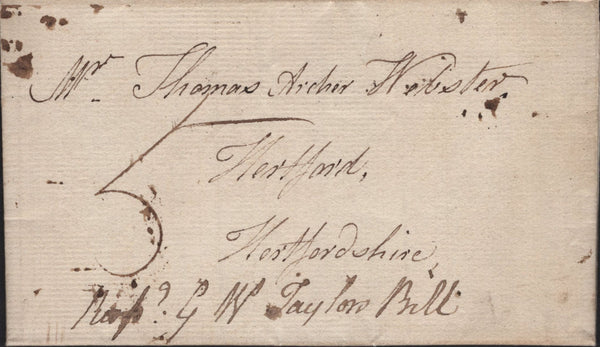 Mr. Thomas Archer Webster
5
Hertford,
Hertfordshire,
G W Taylors Bill